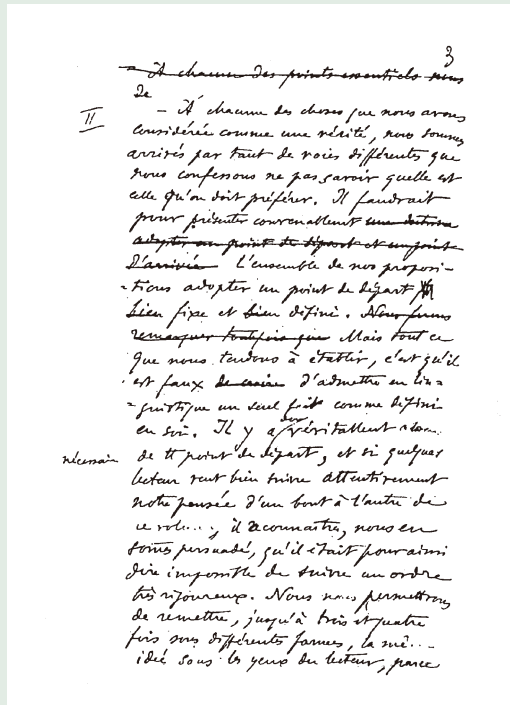 3
À chacun des points essentiels nous
de
II
— À chacune des choses que nous avons
considérée comme une vérité, nous sommes
arrivés par tant de voies différentes que
nous confessons ne pas savoir quelle est
celle qu'on doit préférer. Il faudrait
pour présenter convenablemt
adopter un point de départ et un point
d'arrivée L'ensemble de nos proposi-
-tions adopter un point de départ
bien fixe et bien défini. Nous ferons
remarquer toutefois que Mais tout ce
que nous tendons à établir, c'est qu'il
est faux de croire d'admettre en lin-
-guistique un seul fait comme défini
en soi. Il y a donc véritablemt absence
nécessaire
de tt point de départ, et si quelque
lecteur veut bien suivre attentivement
notre pensée d'un bout à l'autre de
ce volume, il reconnaîtra, nous en
somes persuadé, qu'il était pour ainsi
dire impossible de suivre un ordre
très rigoureux. Nous nous permettrons
de remettre, jusqu'à trois et quatre
fois sous différentes formes, la même
idée sous les yeux du lecteur, parce